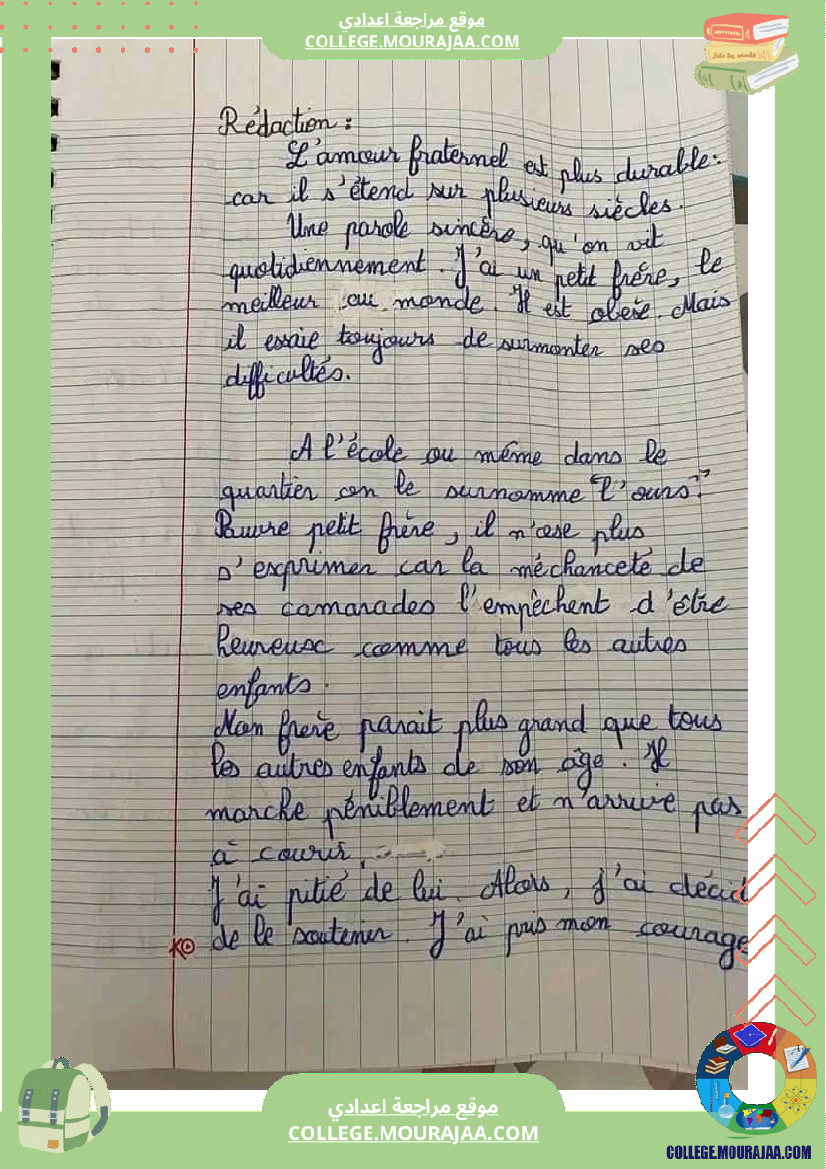 موقع مراجعة اعدادي
COLLEGE.MOURAJAA.COM
Rédaction :
L'amour fraternel est plus durable :
car il s'étend sur plusieurs siècles.
Une parole sincère, qu'on vit
quotidiennement. J'ai un petit frère, le
meilleur au monde. Il est obèse. Mais
il essaie toujours de surmonter ses
difficultés.
A l'école ou même dans le
quartier on le surnomme "l'ours".
Pauvre petit frère, il n'ose plus
s'exprimer car la méchanceté de
ses camarades l'empêchent d'être
heureuse comme tous les autres
enfants.
Mon frère parait plus grand que tous
les autres enfants de son âge. Il
marche péniblement et n'arrive pas
à courir.
J'ai pitié de lui. Alors, j'ai décid
de le soutenir. J'ai pris mon courage
موقع مراجعة اعدادي
COLLEGE.MOURAJAA.COM
COLLEGE.MOURAJAA.COM